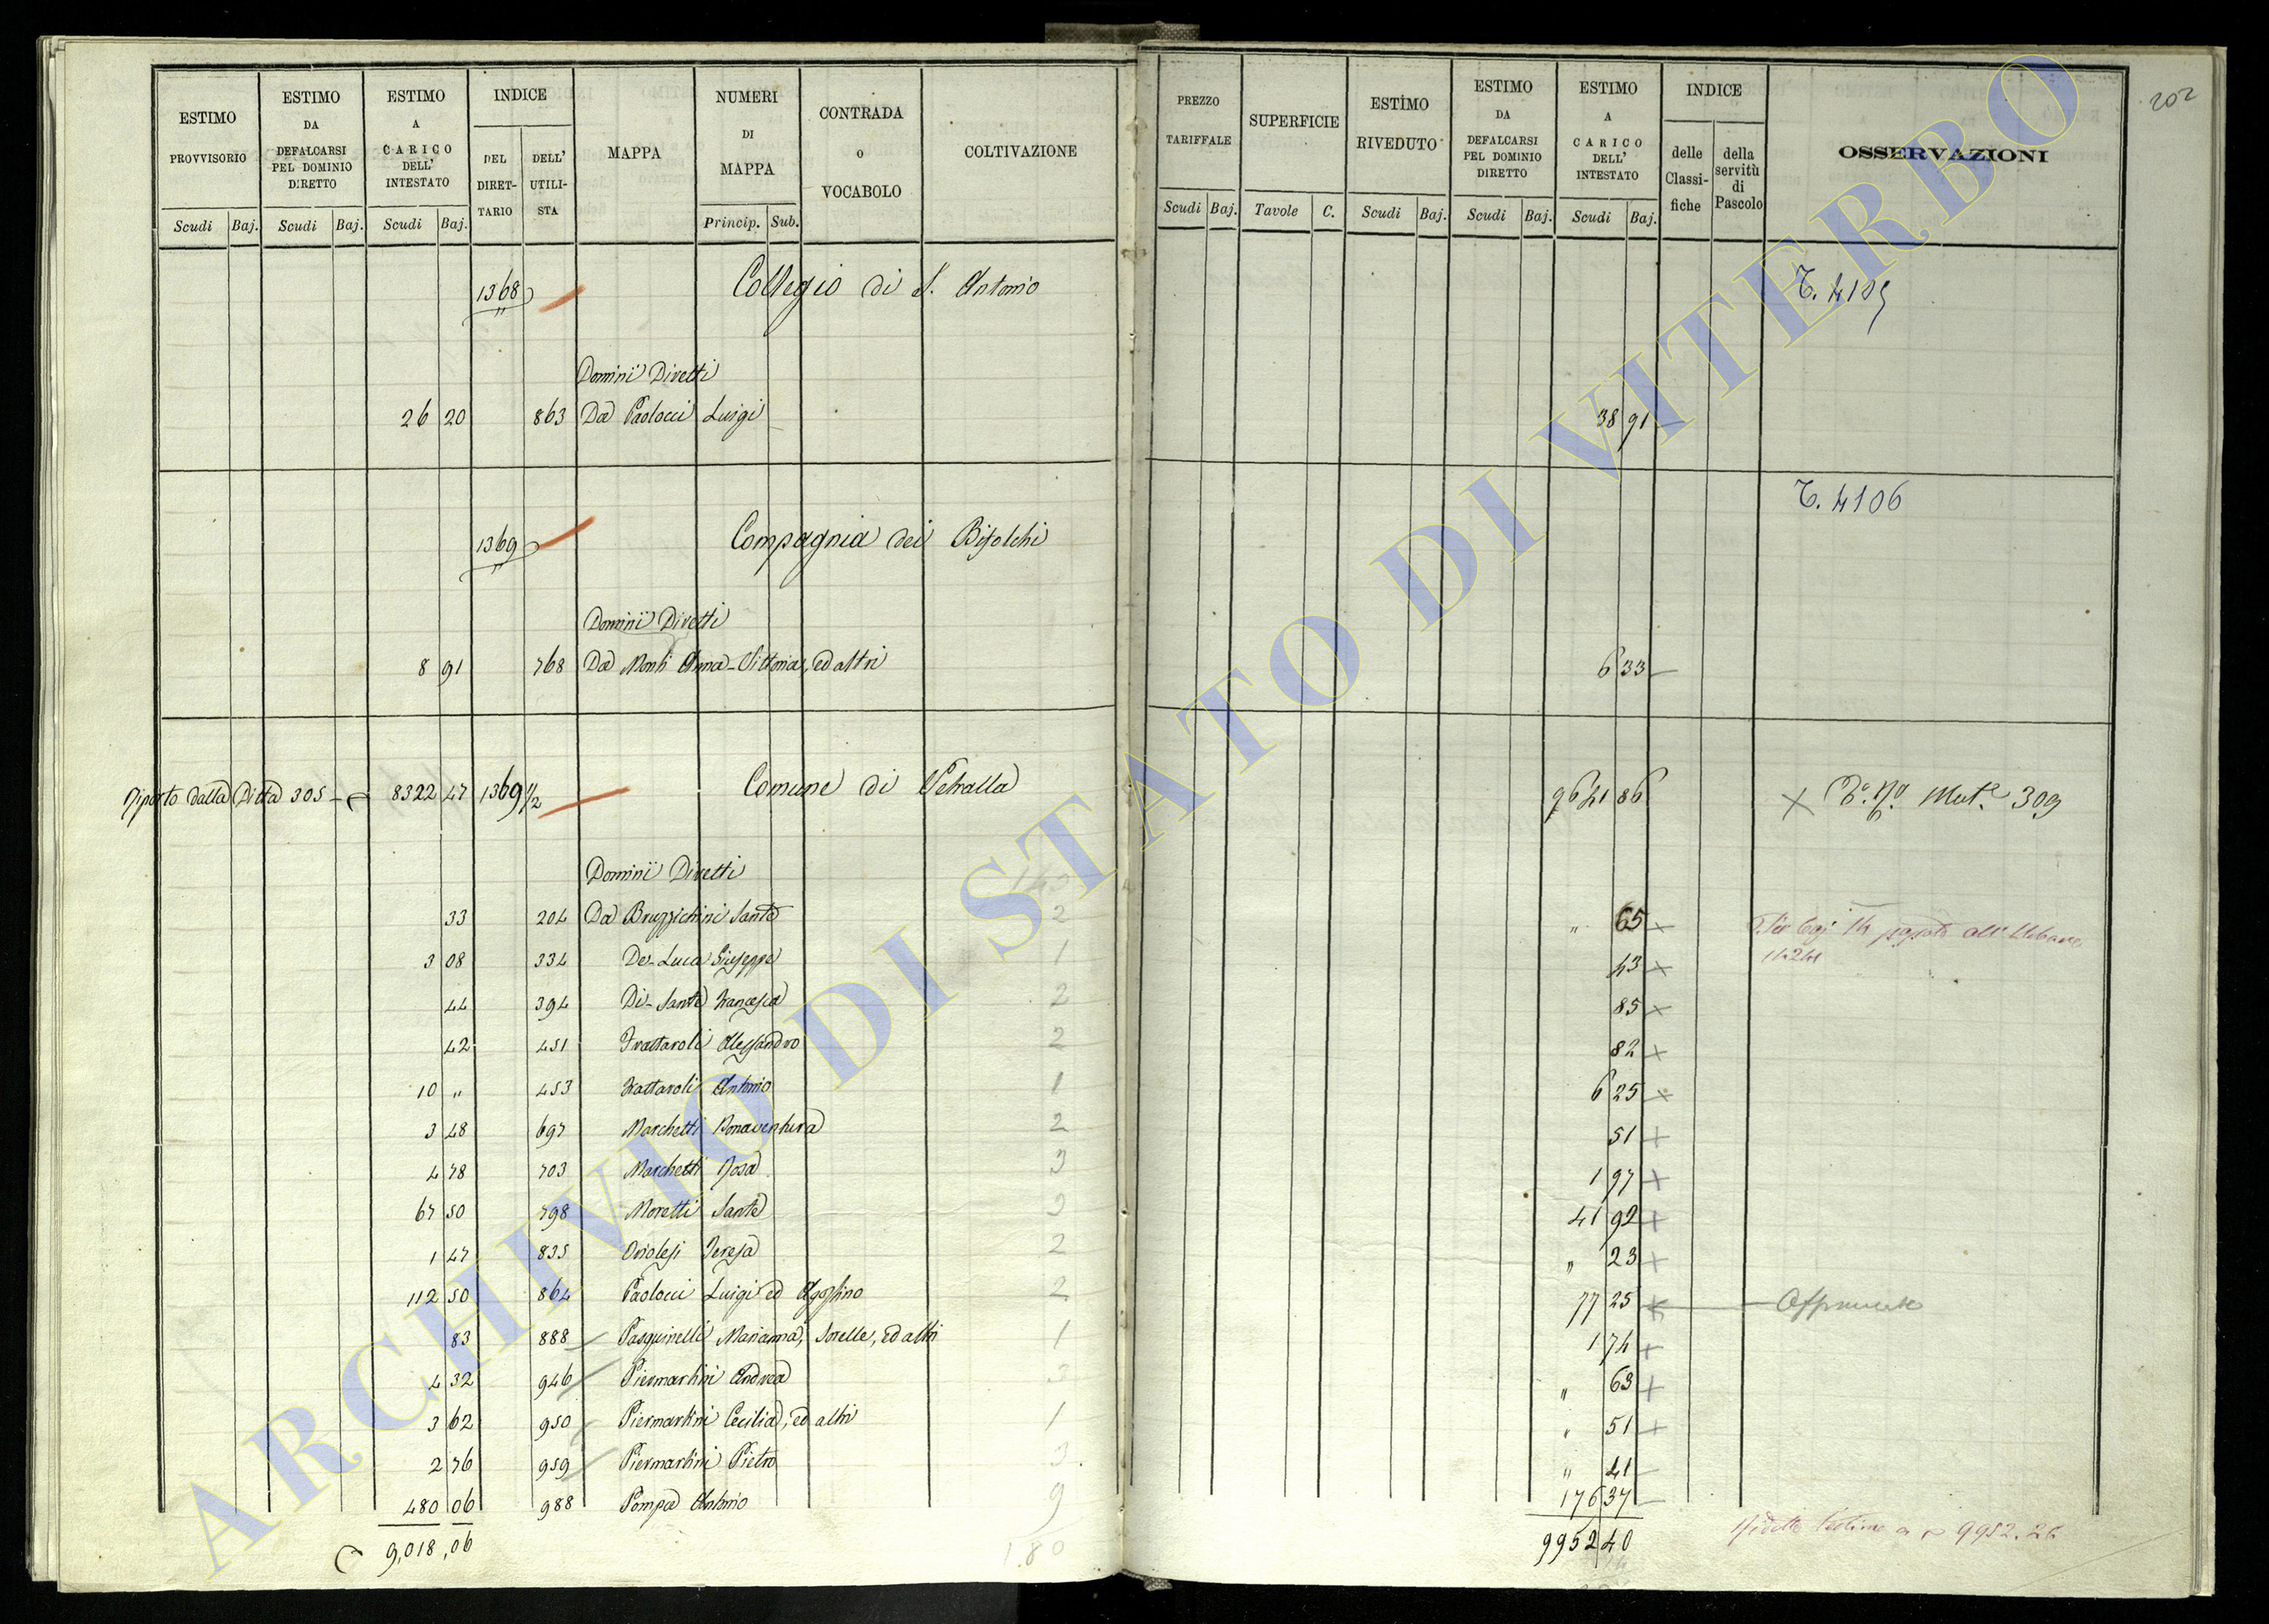 202
ESTIMO PROVVISORIO Scudi Baj.
ESTIMO DA DEFALCARSI PEL DOMINIO DIRETTO Scudi Baj.
ESTIMO A CARICO DELL' INTESTATO Scudi Baj.
INDICE DEL DIRETTARIO DELL' UTILISTA
MAPPA
NUMERI DI MAPPA Princip. Sub.
CONTRADA o VOCABOLO
COLTIVAZIONE
PREZZO TARIFFALE Scudi Baj.
SUPERFICIE Tavole C.
ESTIMO RIVEDUTO Scudi Baj.
ESTIMO DA DEFALCARSI PEL DOMINIO DIRETTO Scudi Baj.
ESTIMO A CARICO DELL' INTESTATO Scudi Baj.
INDICE delle Classifiche della servitù di Pascolo
OSSERVAZIONI
1368 Collegio di S. Antonio T. 4105
Dominii Diretti
26 20 863 Da Paolocci Luigi 38 91
1369 Compagnia dei Bifolchi T. 4106
Dominii Diretti
8 91 768 Da Monti Anna-Vittoria, ed altri 6 33
Riporto dalla Ditta 305 8322 47 1369 1/2 Comune di Vetralla 9641 86 Mut. 309
Dominii Diretti
33 204 Da Bruzzichini Sante 2 " 65
3 08 334 De-Luca Giuseppe 1 43
44 394 Di-Sante Francesca 2 85
42 451 Frattaroli Alessandro 2 82
10 " 453 Frattaroli Antonio 1 6 25
3 48 697 Marchetti Bonaventura 2 51
4 78 703 Marchetti Rosa 3 1 97
67 50 798 Moretti Sante 2 41 92
1 47 835 Oriolesi Teresa 2 " 23
112 50 864 Paolocci Luigi ed Agostino 2 77 25
83 888 Pasquinelli Marianna, Sorelle, ed altri 1 1 74
4 32 946 Piermartini Andrea 3 " 63
3 62 950 Piermartini Cecilia, ed altri 1 " 51
2 76 959 Piermartini Pietro 3 " 41
480 06 988 Pompa Antonio 9 176 37
9,018,06 9952 40 9952.26
ARCHIVIO DI STATO DI VITERBO